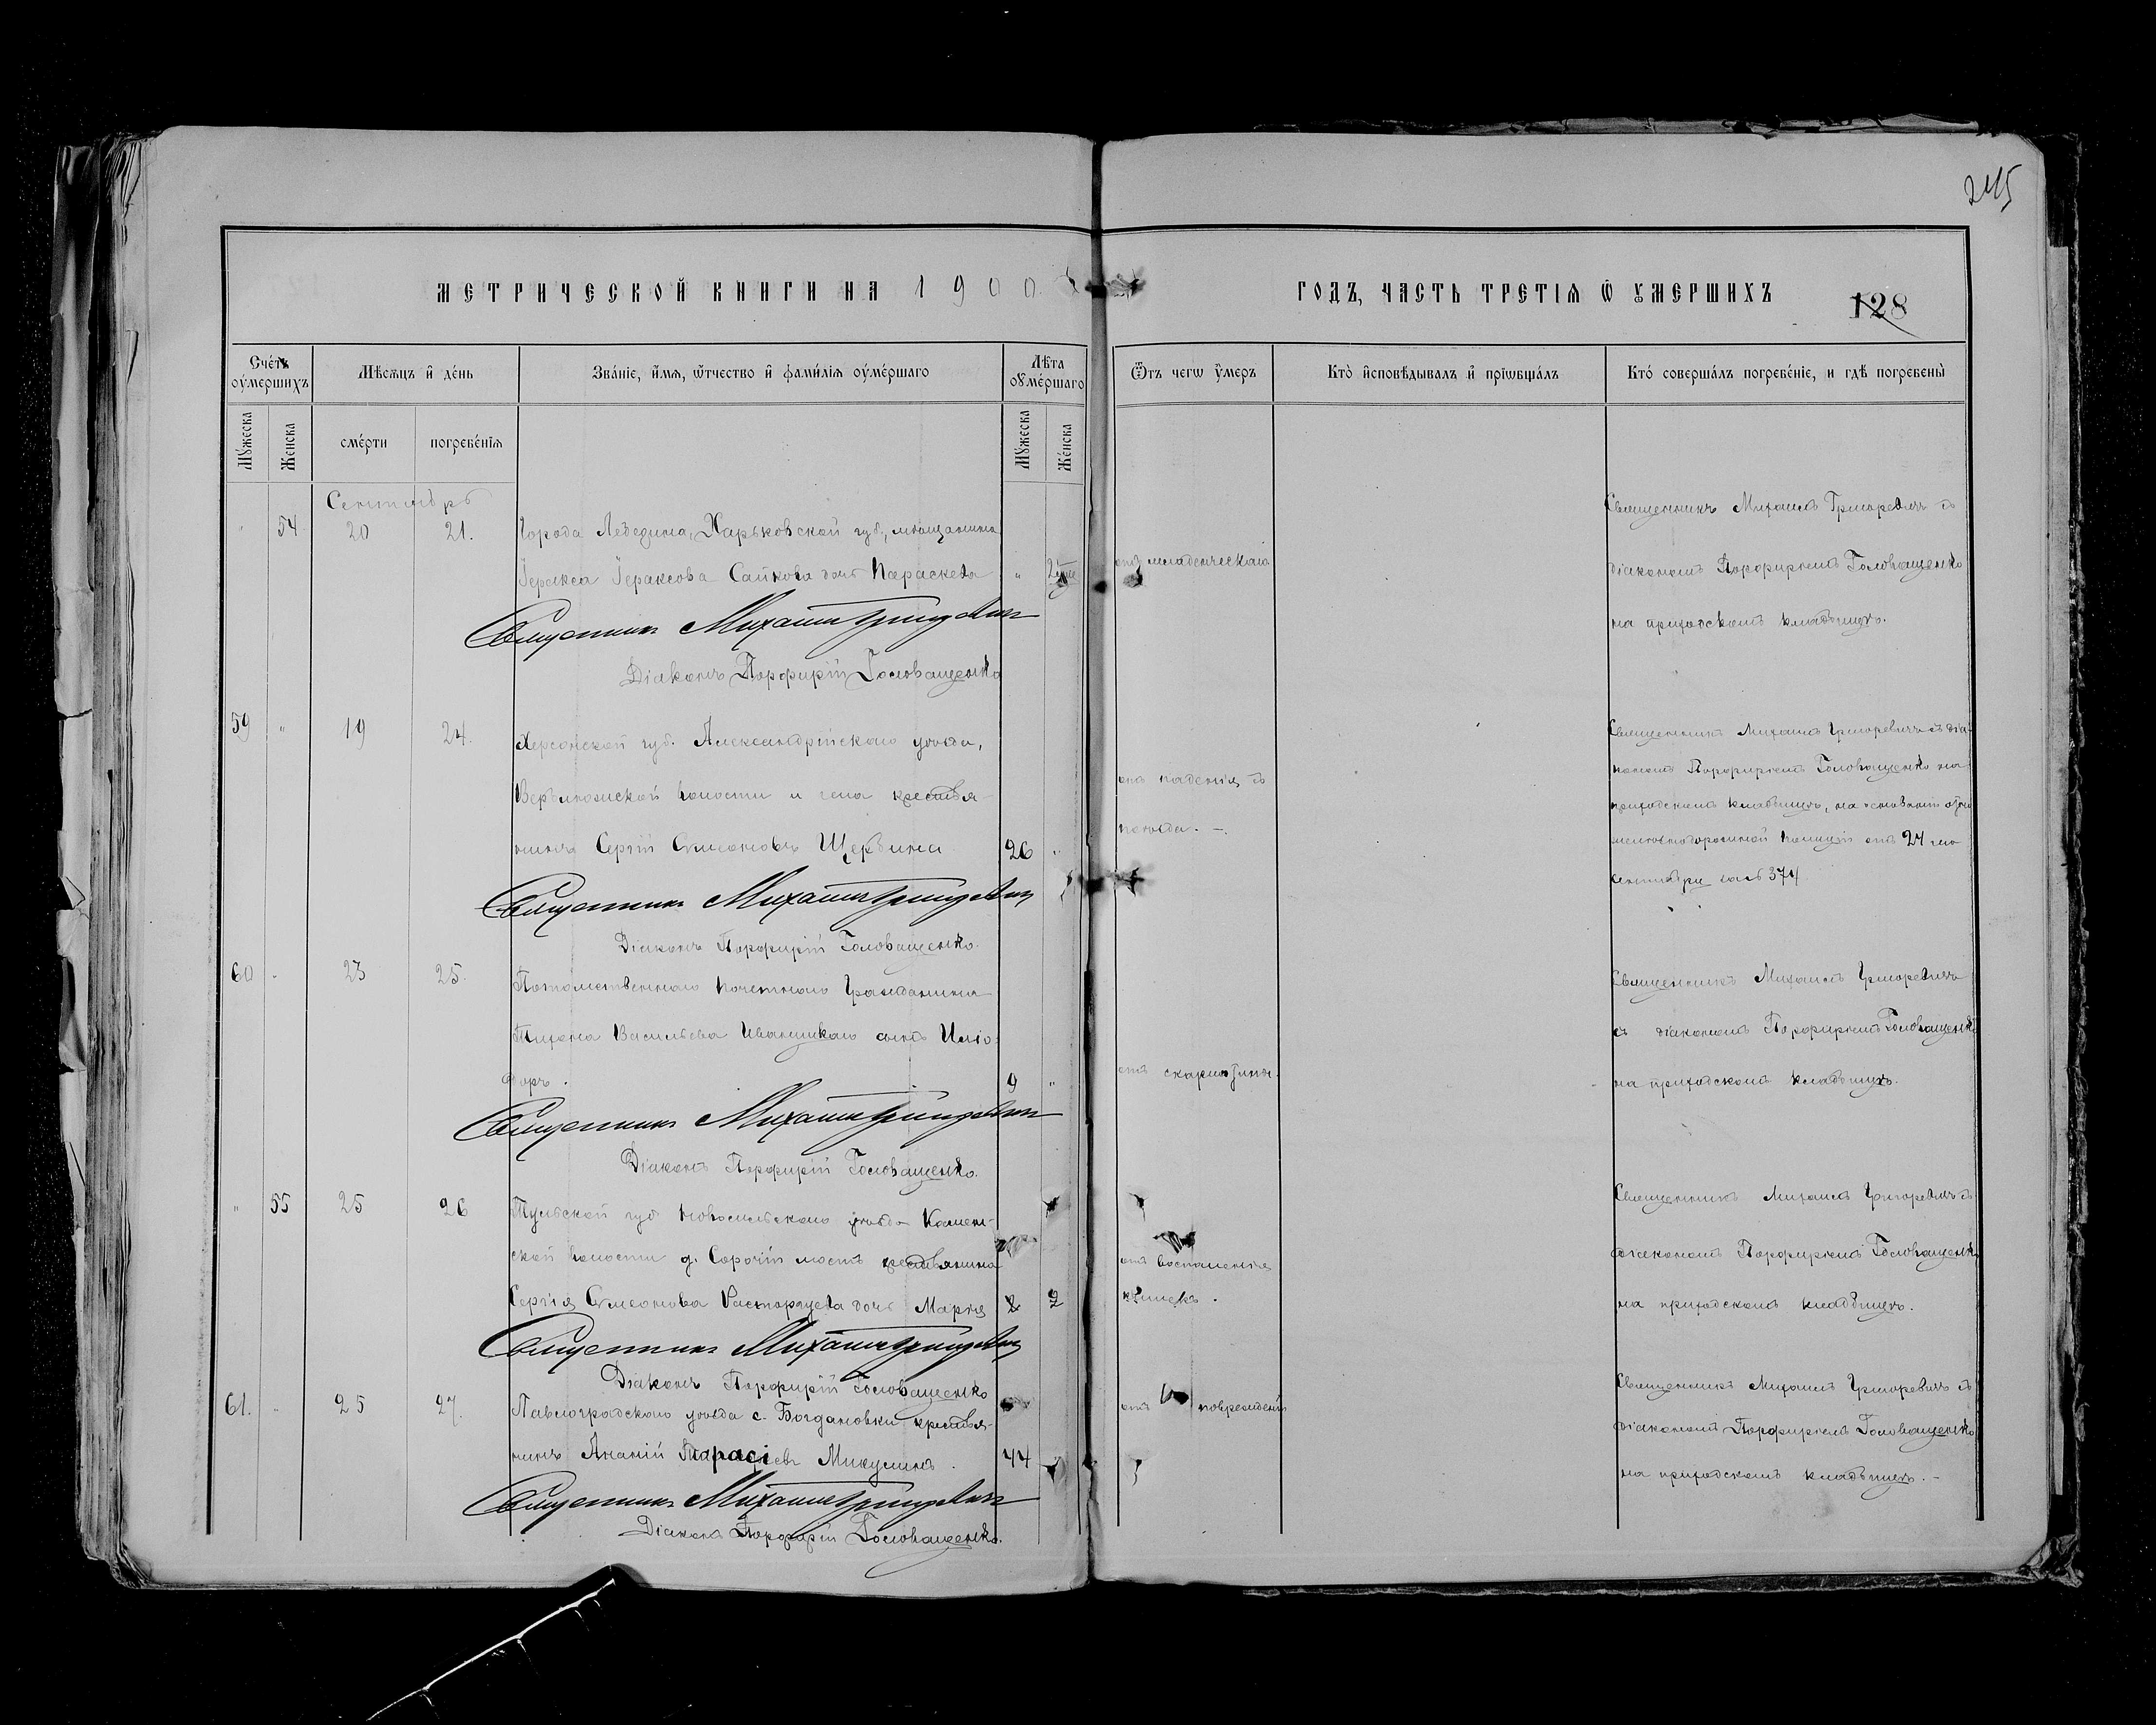 245
МЕТРИЧЕСКОЙ КНИГИ НА 1900
ГОДЪ, ЧАСТЬ ТРЕТІѦ Ѿ ꙊМЕРШИХЪ
128
Счетъ оумершихъ
Мѣсяцъ и день
Званіе, имя, ѿтчество и фамилія оумершаго
Лѣта оумершаго
Ѿтъ чегѡ умеръ
Кто исповѣдывалъ и пріѡбщалъ
Кто совершалъ погребеніе, и гдѣ погребены
Мужеска
Женска
смерти
погребенія
Мужеска
Женска
Сентябрь
" 54 20 21.
Города Лебедина, Харьковской губ., мѣщанина
Іеракса Іераксова Сайкова дочь Параскева "
Священникъ Михаилъ Григоревичъ
Діаконъ Порфирій Головащенко
отъ младенческаго
Священникъ Михаилъ Григоревичъ съ
діакономъ Порфиріемъ Головащенко
на приходскомъ кладбищѣ.
59 " 19 24.
Херсонской губ. Александрійскаго уѣзда,
волости и села крестья-
нинъ Сергій Симеоновъ Щербина 26 "
Священникъ Михаилъ Григоревичъ
Діаконъ Порфирій Головащенко.
отъ паденія съ
поѣзда. –
Священникъ Михаилъ Григоревичъ съ діа-
кономъ Порфиріемъ Головащенко на
приходскомъ кладбищѣ, на основаніи
желѣзнодорожной полиціи отъ 24 го
сентября за № 374
60 " 23 25.
Потомственнаго почетнаго гражданина
Тихона Васильева Иваницкаго сынъ Иліо-
доръ. 9 "
Священникъ Михаилъ Григоревичъ
Діаконъ Порфирій Головащенко.
отъ скарлатины.
Священникъ Михаилъ Григоревичъ
съ діакономъ Порфиріемъ Головащенко
на приходскомъ кладбищѣ.
" 55 25 26
Тульской губ. Новосильскаго уѣзда Камен-
ской волости д. Сорочій мостъ крестьянина
Сергія Симеонова Расторгуева дочь Марія 2
Священникъ Михаилъ Григоревичъ
Діаконъ Порфирій Головащенко
отъ воспаленія
кишекъ.
Священникъ Михаилъ Григоревичъ съ
діакономъ Порфиріемъ Головащенко
на приходскомъ кладбищѣ.
61. " 25 27.
Павлоградскаго уѣзда с. Богдановки крестья-
нинъ Ананій Микулинъ. 44
Священникъ Михаилъ Григоревичъ
Діаконъ Порфирій Головащенко.
отъ поврежденій
Священникъ Михаилъ Григоревичъ съ
діакономъ Порфиріемъ Головащенко
на приходскомъ кладбищѣ. –